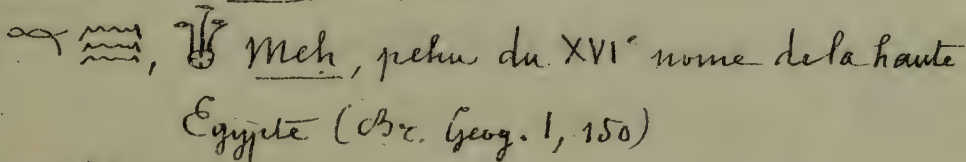 𓎔𓈗, 𓎘 Meh, pehu du XVIe nome de la haute
Egypte (Br. Geog. I, 150)